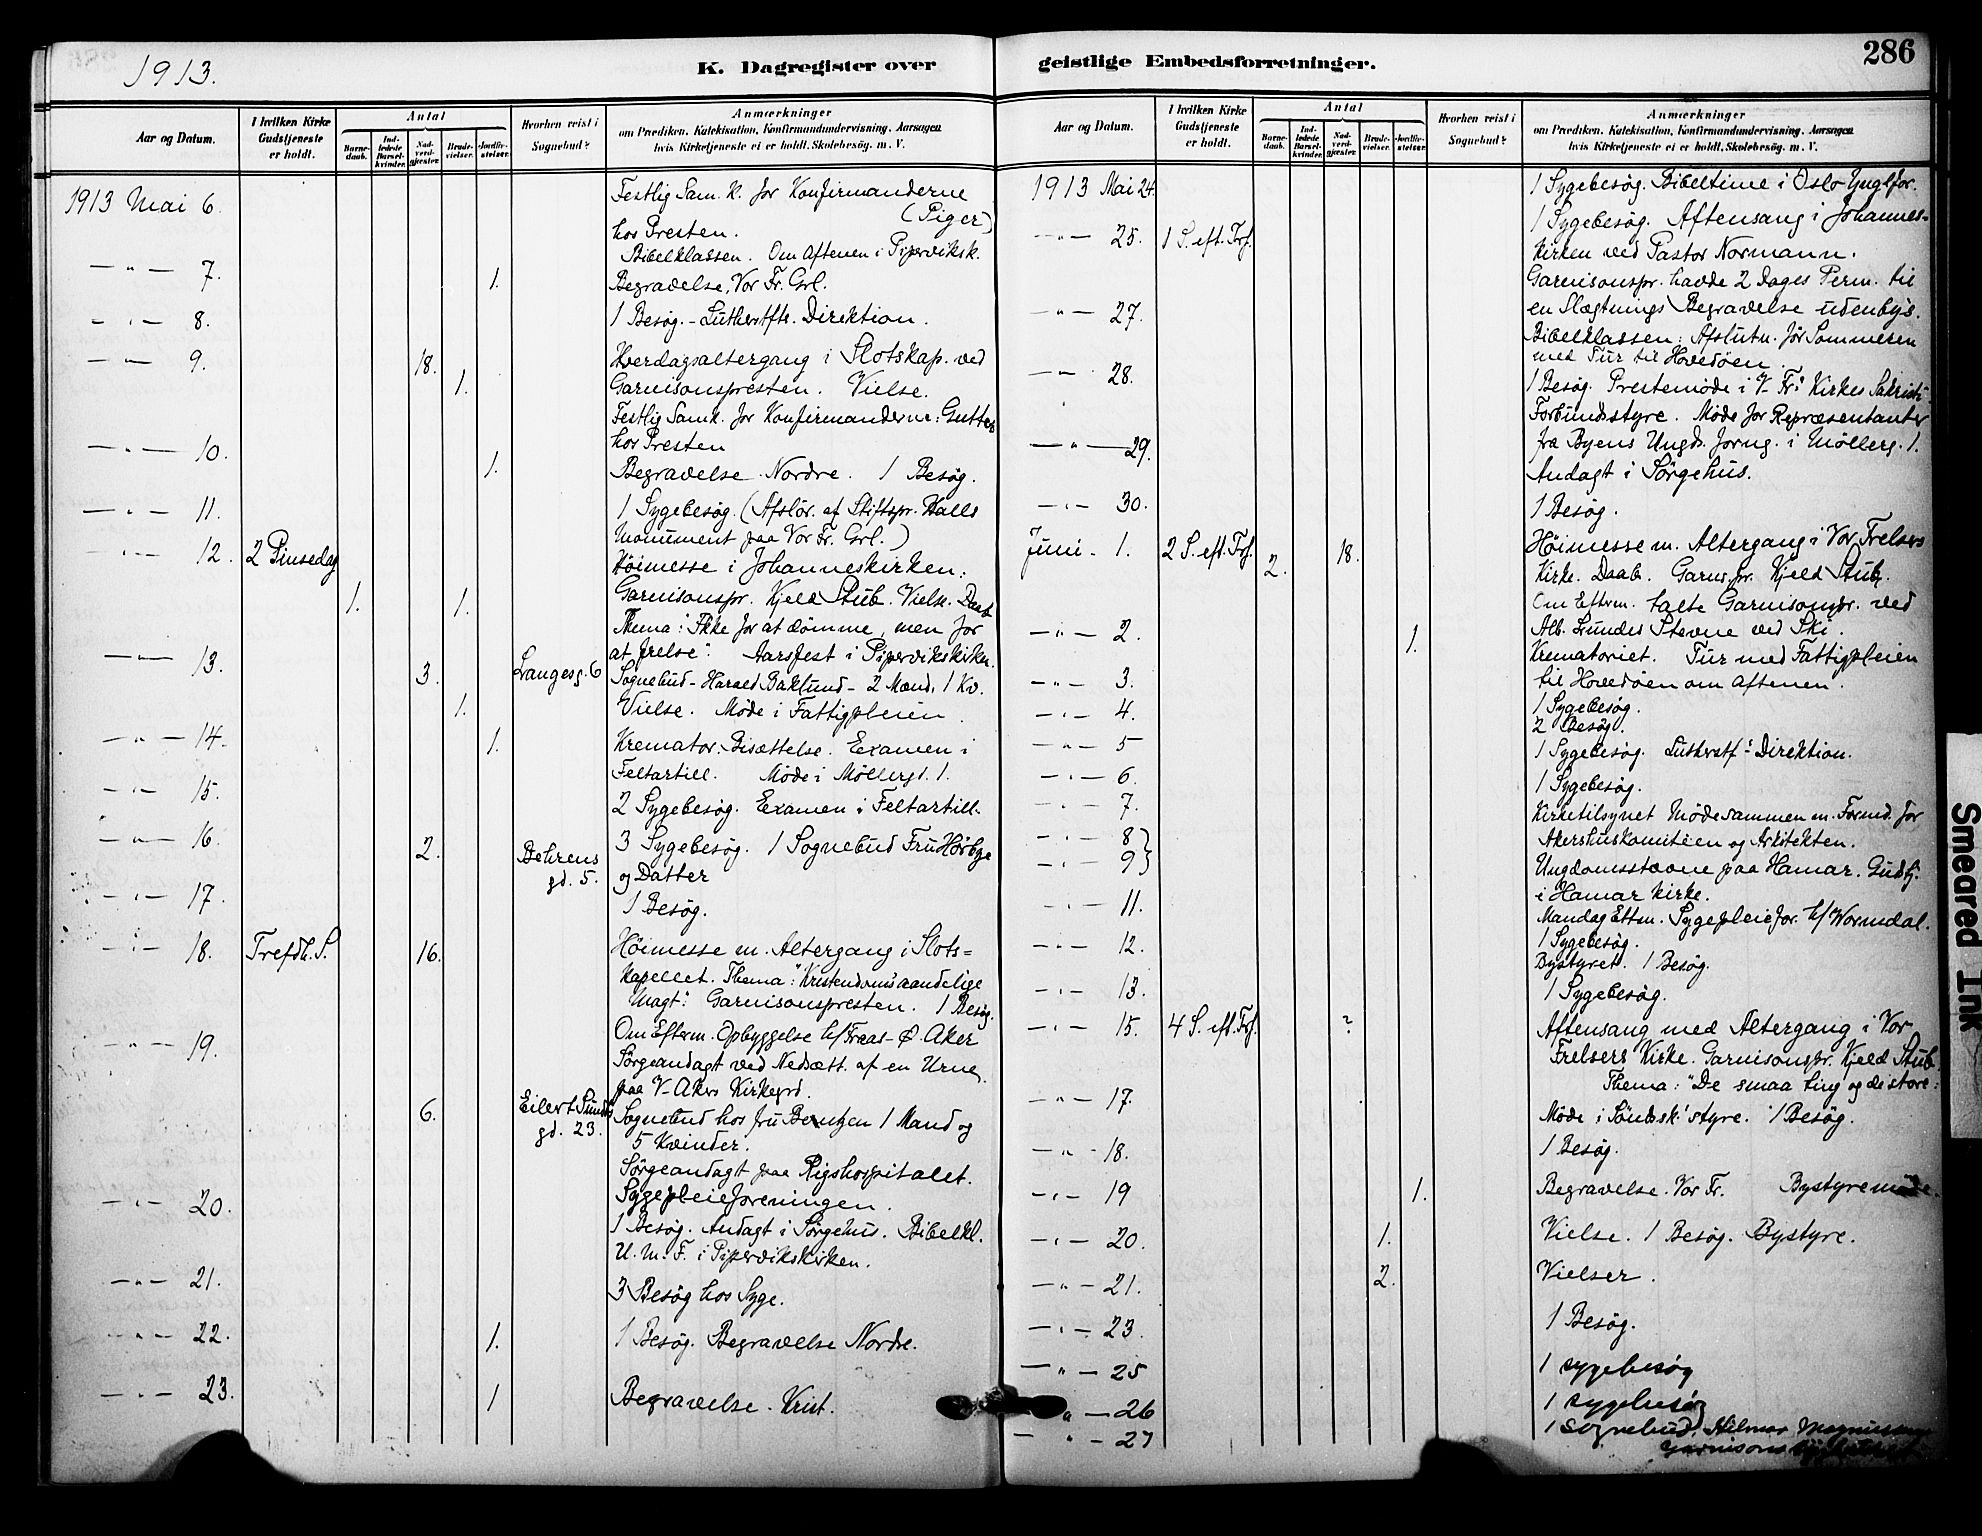 1913.
K. Dagregister over
Aar og Datum.
I hvilken Kirke Gudstjeneste er holdt.
Antal
Barne-daab.
Ind-ledede Barsel-kvinder.
Nad-verd-gjester.
Brude-vielser.
Jordfæ-stelser.
Hvorhen reist i Sognebud?
Anmærkninger
om Prædiken, Katekisation, Konfirmandundervisning, Aarsagen
hvis Kirketjeneste ei er holdt, Skolebesøg. m. V.
1913 Mai 6. Festlig Sam. k. for Konfirmanderne
(Piger)
hos Presten.
Bibelklassen. Om Aftenen i Piperviksk.
— " — 7. 1. Begravelse, Vor Fr. Grl.
— " — 8. 1 Besøg. - Lutherstfts. Direktion.
— " — 9. 18. Hverdagsaltergang i Slotskap. ved
1. Garnisonspresten. Vielse.
Festlig Samk. for Konfirmanderne: Gutter
hos Presten
— " — 10. 1. Begravelse Nordre. 1 Besøg.
— " — 11. 1 Sygebesøg. (Afslør. af Stiftspr. Halls
Monument paa Vor Fr. Grl.)
— " — 12. 2 Pinsedag Høimesse i Johanneskirken:
1. 1. Garnisonspr. Kjeld Stub. Vielse. Daab
Thema: Ikke for at dømme, men for
at frelse". Aarsfest i Piperviksirken.
— " — 13. 3. Langesg. 6 Sognebud - Harald Baklund - 2 Mænd, 1 Kv.
1. Vielse. Møde i Fattigpleien.
— " — 14. 1. Kremator. Bisættelse. Examen i
Feltartill. Møde i Møllergd. 1.
— " — 15. 2 Sygebesøg. Examen i Feltartill.
— " — 16. 2. Behrens gd. 5. 3 Sygebesøg. 1 Sognebud Fru Hørbye
og Datter
— " — 17. 1 Besøg.
— " — 18. Trefdh. S. 16. Høimesse m. Altergang i Slots=
kapellet. Thema: "Kristendoms aandelige
Magt". Garnisonspresten. 1 Besøg.
Om Efterm. Opbyggelse h/ Fraas - Ø. Aker
— " — 19. Sørgeandagt ved Nedsætt. af en Urne
paa V-Akers Kirkegrd.
6. Eilert Sundts gd. 23. Sognebud hos fru Bentzen 1 Mand og
5 Kvinder.
Sørgeandagt paa Rigshospitalet.
Sygepleieforeningen.
— " — 20. 1 Besøg. Andagt i Sørgehus. Bibelkl.
U. M. F. i Pipervikskirken.
— " — 21. 3 Besøg hos Syge.
— " — 22. 1. 1 Besøg. Begravelse Nordre.
— " — 23. 1 Begravelse. Krist.
geistlige Embedsforretninger.
286
Aar og Datum.
I hvilken Kirke Gudstjeneste er holdt.
Antal
Barne-daab.
Ind-ledede Barsel-kvinder.
Nad-verd-gjester.
Brude-vielser.
Jordfæ-stelser.
Hvorhen reist i Sognebud?
Anmærkninger
om Prædiken, Katekisation, Konfirmandundervisning, Aarsagen
hvis Kirketjeneste ei er holdt, Skolebesøg. m. V.
1913 Mai 24. 1 Sygebesøg. Bibeltime i Oslo Ynglfor.
— " — 25. 1 S. eft. Trf. 1 Sygebesøg. Aftensang i Johannes-
kirken ved Pastor Normann.
Garnisonspr. havde 2 Dages Perm. til
— " — 27. en Slægtnings Begravelse udenbys.
Bibelklassen: Afslutn. før Sommeren
med Tur til Hovedøen.
— " — 28. 1 Besøg. Prestemøde i V. Fr.' Kirkes Sakristi
Forbundsstyre. Møde for Repræsentanter
— " — 29. fra Byens Ungd. forng. i Møllerg. 1.
Andagt i Sørgehus.
— " — 30. 1 Besøg.
Juni - 1. 2 S. eft. Trf. 2. 18. Høimesse m. Altergang i Vor Frelsers
Kirke. Daab. Garns.pr. Kjeld Stub.
Om Efterm. talte Garnisonspr. ved
Alb. Lundes Stevne ved Ski.
— " — 2. 1. Krematoriet. Tur med Fattigpleien
til Hovedøen om Aftenen.
— " — 3. 1 Sygebesøg.
— " — 4. 2 Besøg.
— " — 5 1 Sygebesøg. Lutherstf.' Direktion.
— " — 6. 1 Sygebesøg.
— " — 7. Kirketilsynet Møde sammen m. Formd. for
Akershuskomitéen og Arkitekten.
— " — 8 }
— " — 9 } Ungdomsstævne paa Hamar. Gudstj.
i Hamar kirke.
Mandag Eftm. Sygepleiefor. h/ Wormdal.
— " — 11. 1 Sygebesøg.
— " — 12. Bystyret. 1 Besøg.
— " — 13. 1 Sygebesøg.
— " — 15. 4 S. eft. Trf. ? Aftensang med Altergang i Vor
Frelsers Kirke. Garnisonspr. Kjeld Stub.
Thema: "De smaa ting og de store".
— " — 17. Møde i Søndssk.' styre. 1 Besøg.
— " — 18. 1 Besøg.
— " — 19 1. Begravelse. Vor Fr. Bystyremøde.
— " — 20. 1. Vielse. 1 Besøg. Bystyre.
— " — 21. 2. Vielser.
— " — 23. 1 Besøg.
— " — 25 1 sygebesøg
" — 26 1 sygebesøg
— " — 27 1 Sognebud, Hilmar Magnussen
Smeared Ink